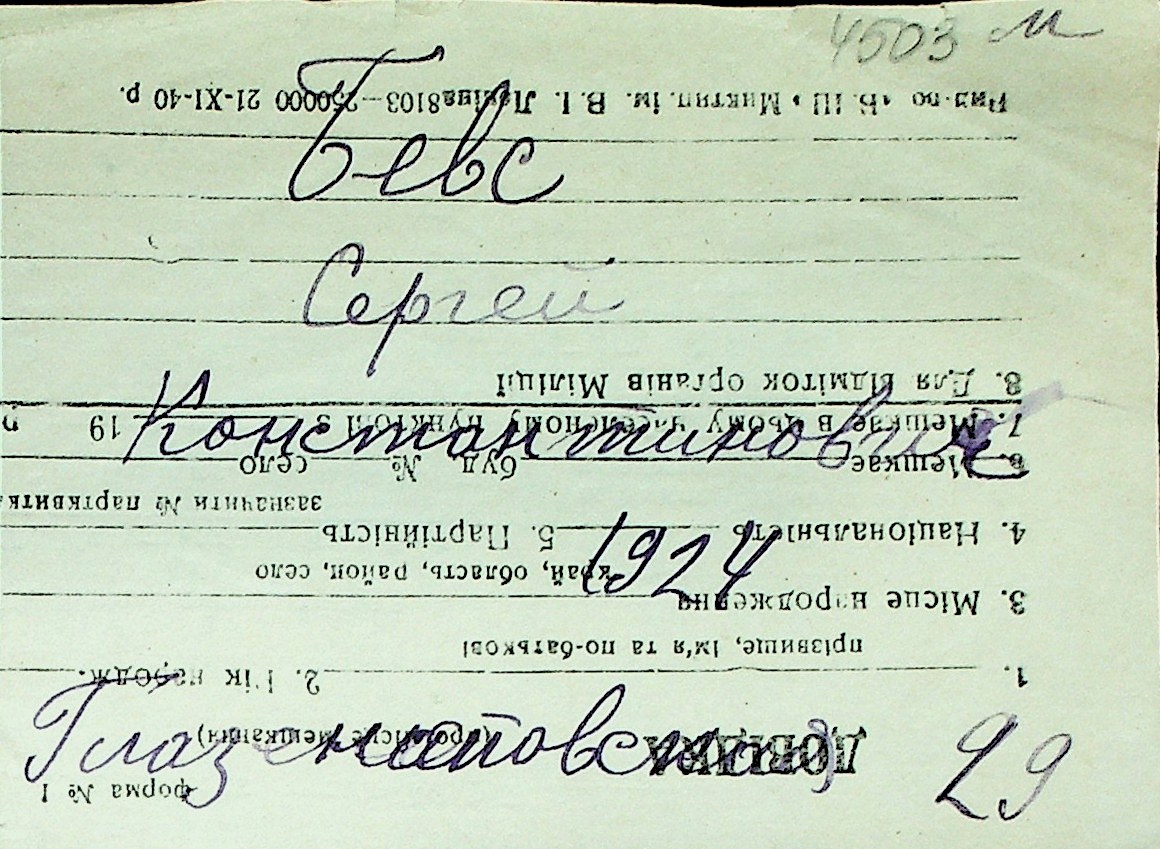 4503 м
Бевс
Сергей
Константинович
1924
Глазенаповская
29
форма № 1
ДОВІДКА
(про місце мешкання)
1. 2. Рік народж.
прізвище, ім'я та по-батькові
3. Місце народження
край, область, район, село
4. Національність 5. Партійність
зазначити № партквитка
6. Мешкає село буд. №
7. Мешкає в цьому населеному пункті з 19 р
8. Для відміток органів Міліції
ім. В. І. Леніна 8103—250000 21-XI-40 р.